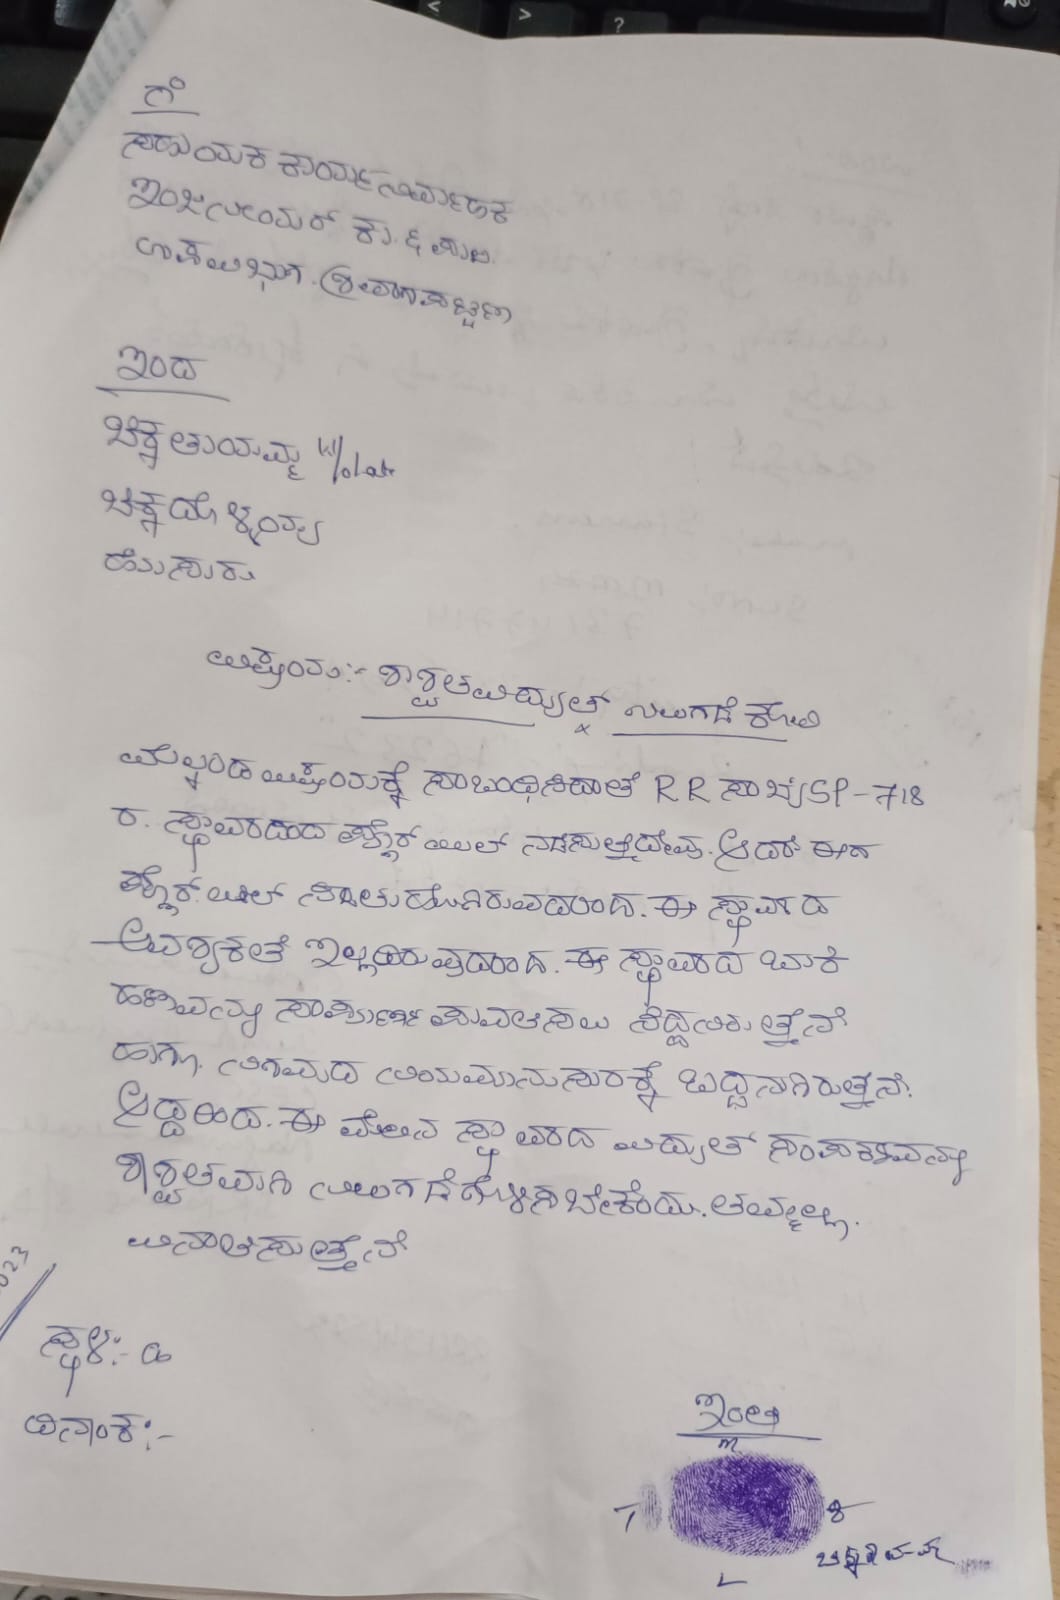 ಗೆ
ಸಹಾಯಕ ಕಾರ್ಯನಿರ್ವಾಹಕ
ಇಂಜಿನೀಯರ್ ಕಾ & ಪಾಲ
ಉಪವಿಭಾಗ. ಶ್ರೀರಂಗಪಟ್ಟಣ
ಇಂದ
ಚಿಕ್ಕತಾಯಮ್ಮ W/o Late
ಹೊಸೂರು
ವಿಷಯ:- ಶಾಶ್ವತ ವಿದ್ಯುತ್ ನಿಲುಗಡೆ ಕೋರಿ
ಮೇಲ್ಕಂಡ ವಿಷಯಕ್ಕೆ ಸಂಬಂಧಿಸಿದಂತೆ RR ಸಂಖ್ಯೆ SP-718
ರ. ಸ್ಥಾವರದಿಂದ ಪ್ಲೋರ್ ಮಿಲ್ ನಡೆಸುತ್ತಿದ್ದೇವು. ಆದರೆ ಈಗ
ಪ್ಲೋರ್ ಮಿಲ್ ನಿಂತುಹೋಗಿರುವುದರಿಂದ. ಈ ಸ್ಥಾವರದ
ಅವಶ್ಯಕತೆ ಇಲ್ಲದಿರುವುದರಿಂದ. ಈ ಸ್ಥಾವರದ ಬಾಕಿ
ಹಣವನ್ನು ಸಂಪೂರ್ಣ ಪಾವತಿಸಲು ಸಿದ್ದನಿರುತ್ತೇನೆ
ಹಾಗೂ ನಿಗಮದ ನಿಯಮಾನುಸಾರಕ್ಕೆ ಬದ್ದನಾಗಿರುತ್ತೇನೆ.
ಆದ್ದರಿಂದ. ಈ ಮೇಲಿನ ಸ್ಥಾವರದ ವಿದ್ಯುತ್ ಸಂಪರ್ಕವನ್ನು
ಶಾಶ್ವತವಾಗಿ ನಿಲುಗಡೆಗೊಳಿಸಬೇಕೆಂದು. ತಮ್ಮಲ್ಲಿ.
ವಿನಂತಿಸುತ್ತೇನೆ
ಸ್ಥಳ:-
ದಿನಾಂಕ:-
ಇಂತಿ